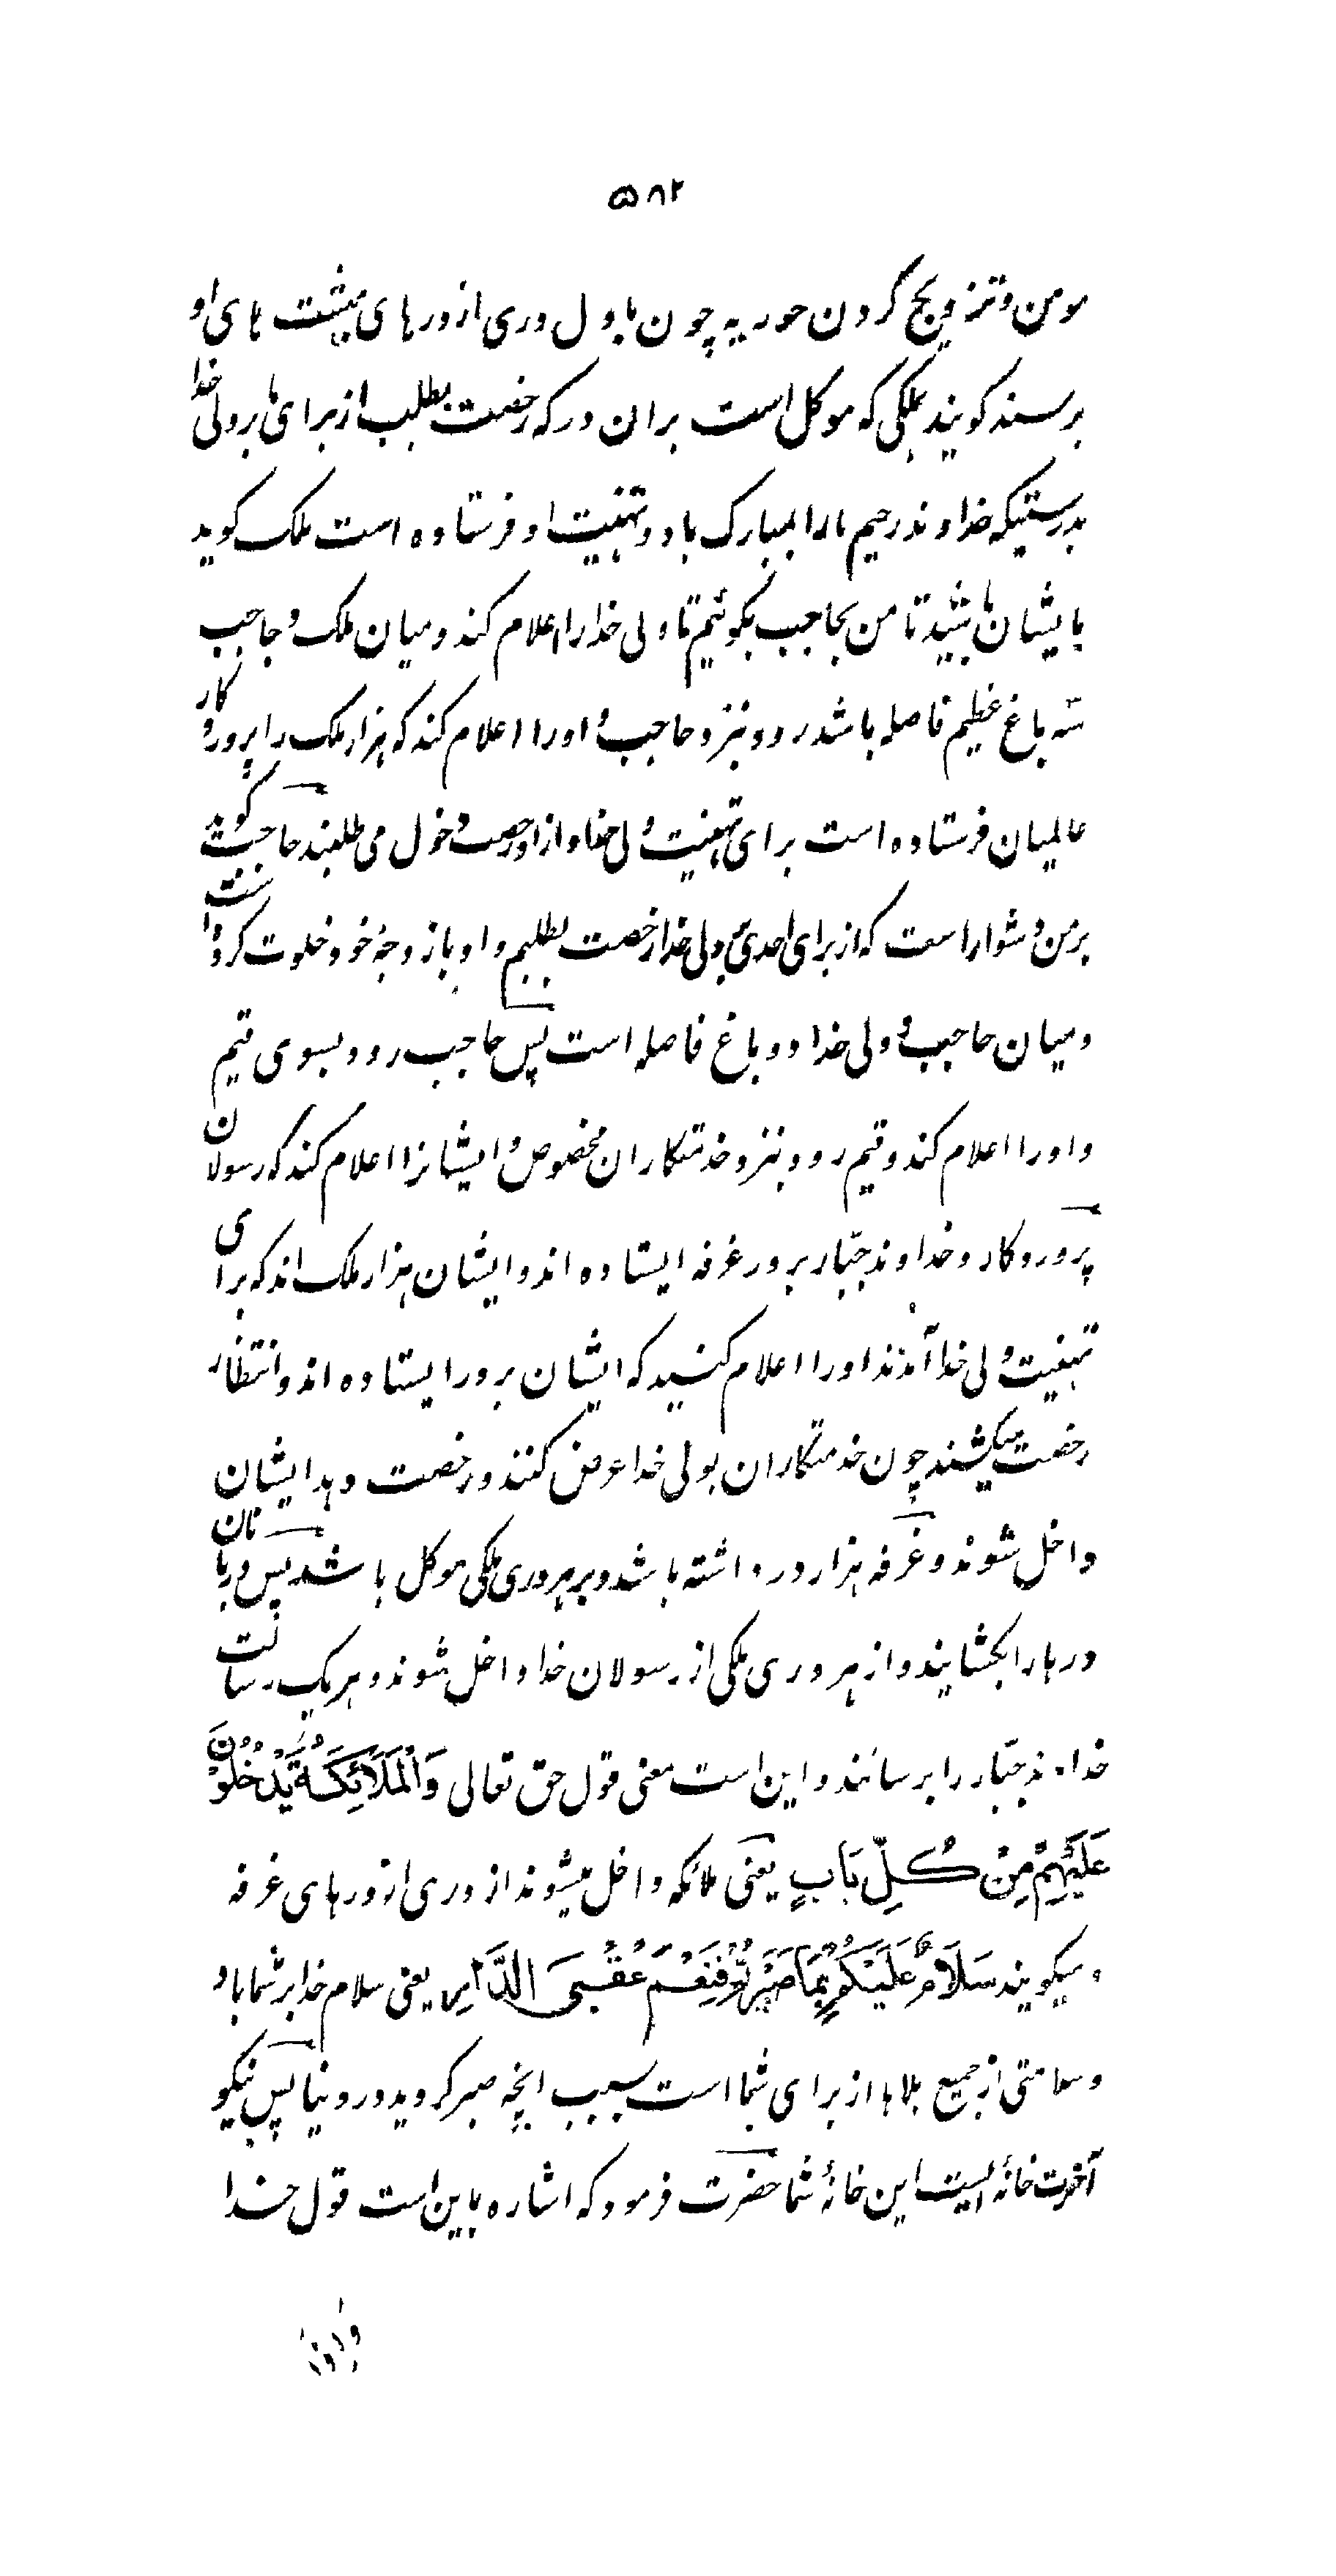 ۵۸۲
مومن و تزویج کردن حوریه چون باول دری از درهای بهشت های او
برسند کویند بملکی که موکل است بران در که رخصت بطلب از برای ما بر ولی خدا
بدرستیکه خداوند رحیم ما را بمبارک باد و تهنیت او فرستاده است ملک کوید
بایشان باشید تا من بحاجب بکوئیم تا ولی خدا را اعلام کند و میان ملک و حاجب
سه باغ عظیم فاصله باشد رود بنزد حاجب و او را اعلام کند که هزار ملک را پروردکار
عالمیان فرستاده است برای تهنیت ولی خدا و از او رخصت دخول می طلبند حاجب کوید
بر من دشوار است که از برای احدی بر ولی خدا رخصت بطلبم و او با زوجهٔ خود خلوت کرده است
و میان حاجب و ولی خدا دو باغ فاصله است پس حاجب رود بسوی قیم
و او را اعلام کند و قیم رود بنزد خدمتکاران مخصوص و ایشانرا اعلام کند که رسولان
پروردکار و خداوند جبّار بر در غرفه ایستاده اند و ایشان هزار ملک اند که برای
تهنیت ولی خدا آمدند او را اعلام کنید که ایشان بر در ایستاده اند و انتظار
رخصت میکشند چون خدمتکاران بولی خدا عرض کنند و رخصت دهد ایشان
داخل شوند و غرفه هزار در داشته باشد و بر هر دری ملکی موکل باشد پس دربانان
درها را بکشایند و از هر دری ملکی از رسولان خدا داخل شوند و هر یک رسالت
خداوند جبّار را برسانند و این است معنی قول حق تعالی وَالْمَلَائِکَةُ یَدْخُلُوْنَ
عَلَیْهِمْ مِنْ کُلِّ بَابٍ یعنی ملائکه داخل میشوند از دری از درهای غرفه
و میکویند سَلَامٌ عَلَیْکُمْ بِمَا صَبَرْتُمْ فَنِعْمَ عُقْبَی الدَّارِ یعنی سلام خدا بر شما باد
و سلامتی از جمیع بلاها از برای شما است بسبب انچه صبر کردید در دنیا پس نیکو
آخرت خانه ایست این خانهٔ شما حضرت فرمود که اشاره باین است قول خدا